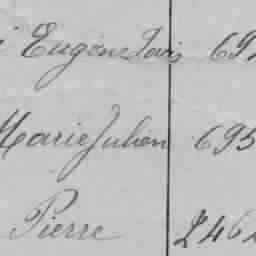 Eugène Louis 692
Marie Julien 695
Pierre 246